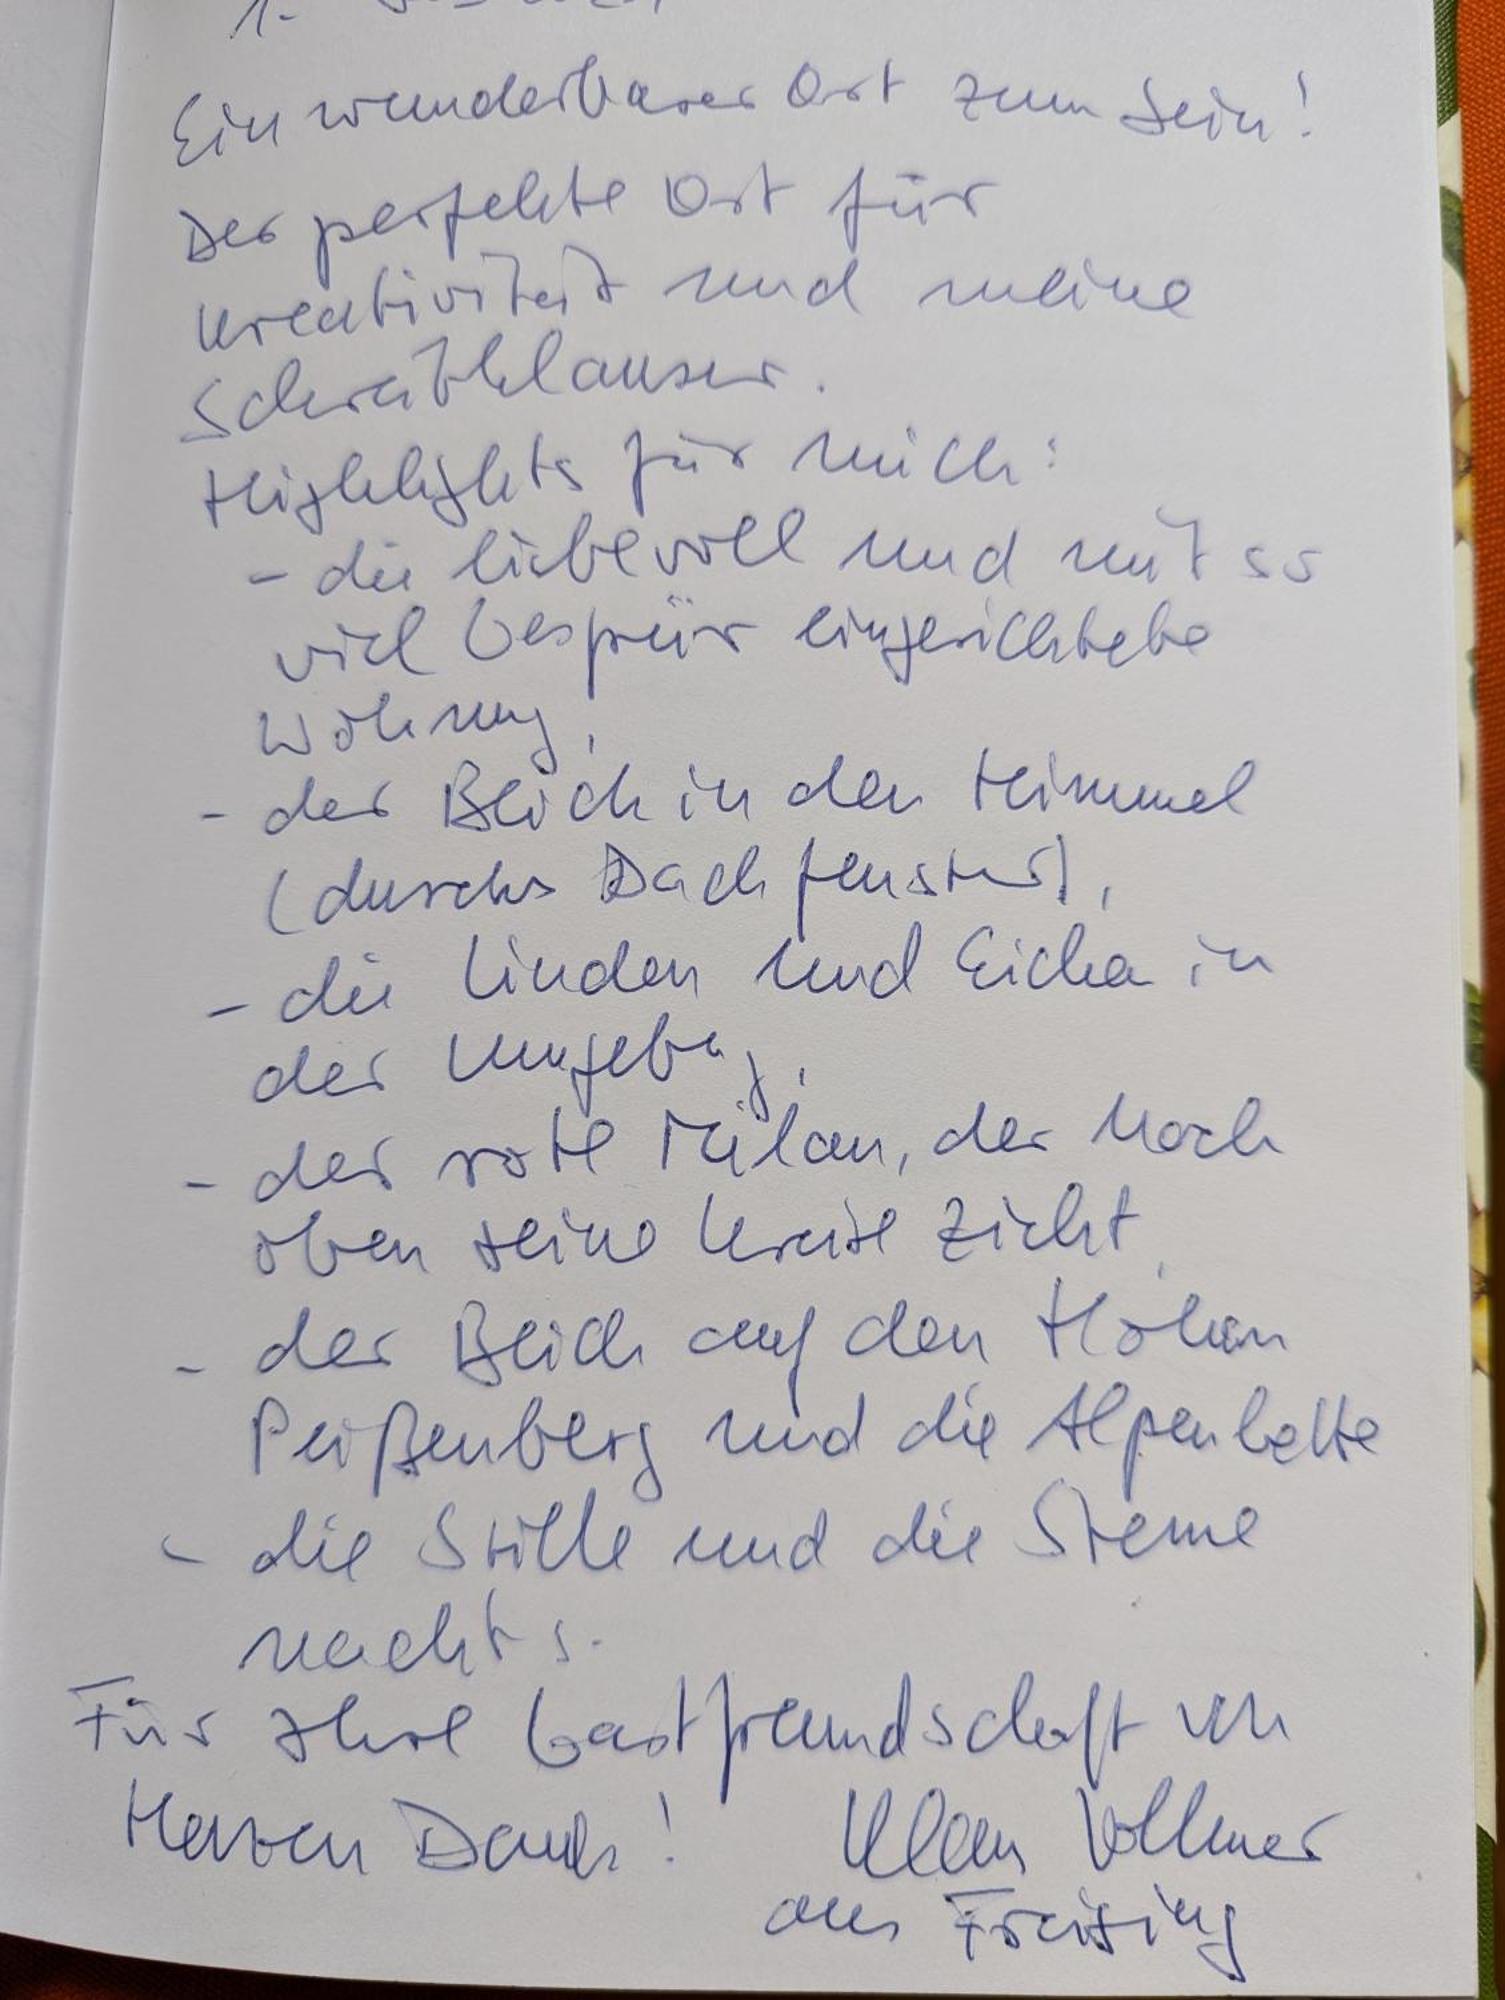 1.
Ein wunderbarer Ort zum Sein!
Der perfekte Ort für
Kreativität und meine
Schreibklausur.
Highlights für mich:
- die liebevoll und mit so
viel Gespür eingerichtete
Wohnung,
- der Blick in den Himmel
(durchs Dachfenster),
- die Linden und Eichen in
der Umgebung,
- der rote Milan, der hoch
oben seine Kreise zieht,
- der Blick auf den Hohen
Peißenberg und die Alpenkette
- die Stille und die Sterne
nachts.
Für Ihre Gastfreundschaft von
Herzen Dank! Klaus Vollmer
aus Freising